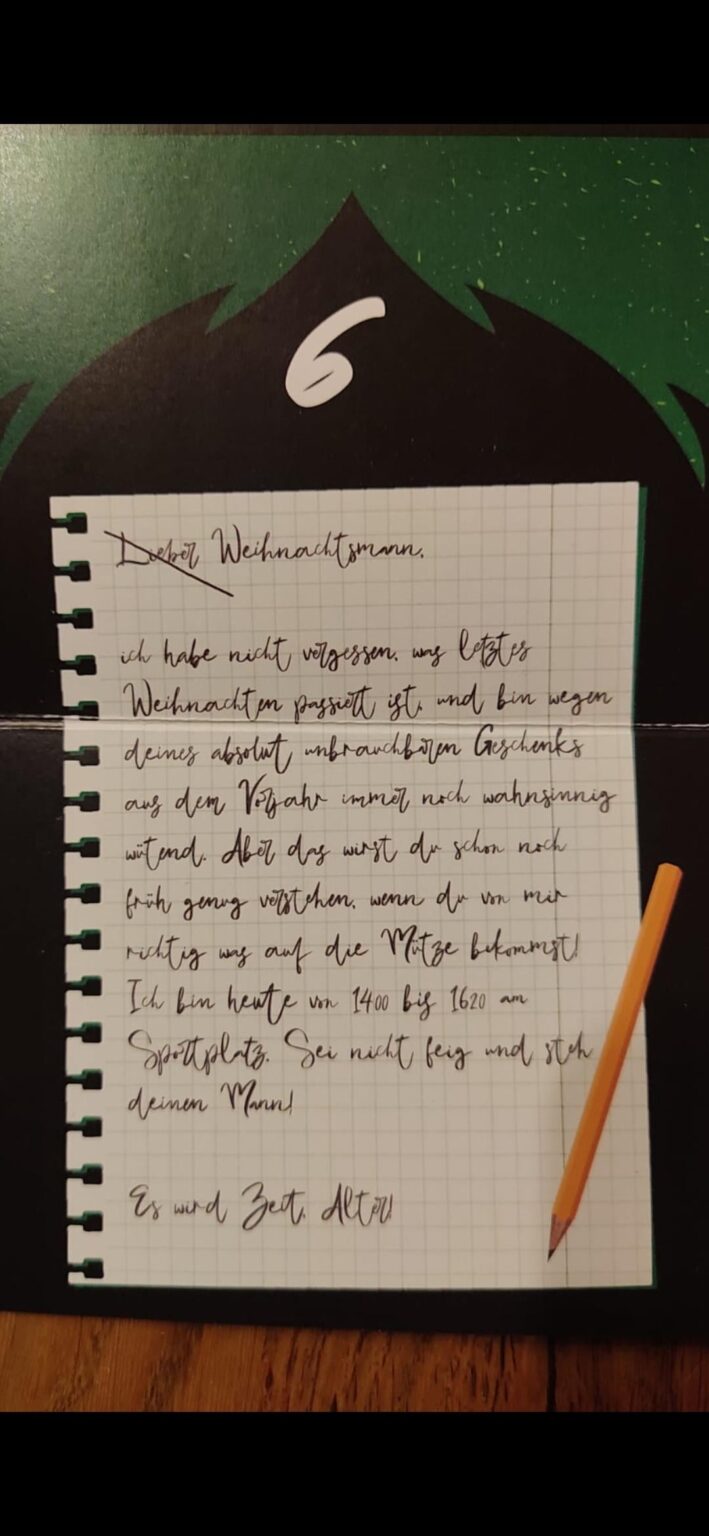 6
Lieber Weihnachtsmann,
ich habe nicht vergessen, was letztes
Weihnachten passiert ist, und bin wegen
deines absolut unbrauchbaren Geschenks
aus dem Vorjahr immer noch wahnsinnig
wütend. Aber das wirst du schon noch
früh genug verstehen, wenn du von mir
richtig was auf die Mütze bekommst!
Ich bin heute von 1400 bis 1620 am
Sportplatz. Sei nicht feig und steh
deinen Mann!
Es wird Zeit, Alter!